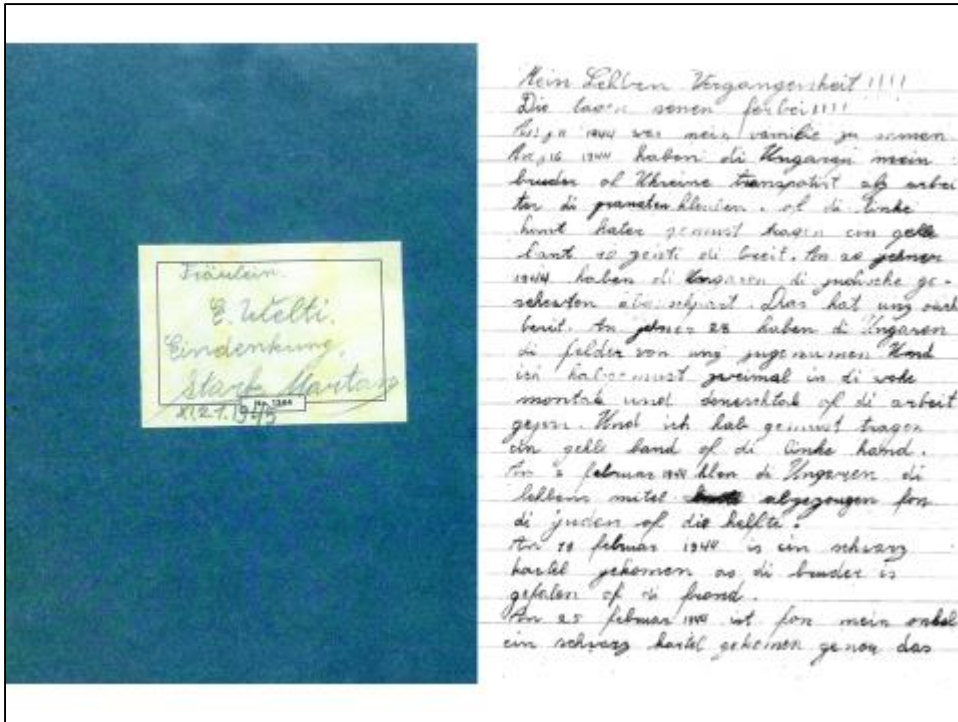 Fräulein.
E. Welti.
Eindenkung.
Stark Martan
XI 21. 1945
No. 1266
Mein Lehben Vergangenheit !!!!
Die tagen senen ferbei!!!!
1944 war mein vamilie zu samen
An 16 1944 haben di Ungaren mein
bruder of Ukreine transpotirt als arbei
ter di granaten kleuben. of di linke
hant hater gemust tragen ein gelle
bant 10 zenti di breit. An 20 jehner
1944 haben di Ungaren di judische ge-
schewten abgschpart. Das hat ung
bereit. An jehner 28 haben di Ungaren
di felder von ung zugenumen Und
ich habgemust zweimal in di wohe
montak und doneschtak of di arbeit
gejen. Und ich hab gemust tragen
ein gelle band of di linke hand.
An 2 februar 1944 di Ungaren di
lehbens mitel abgezougen fon
di juden of die helfte.
An 18 februar 1944 is ein schwarz
kartel gekomen as di bruder is
gefalen of di frond.
An 25 februar 1944 ist fon mein onkel
ein schwarz kartel gekomen genou das